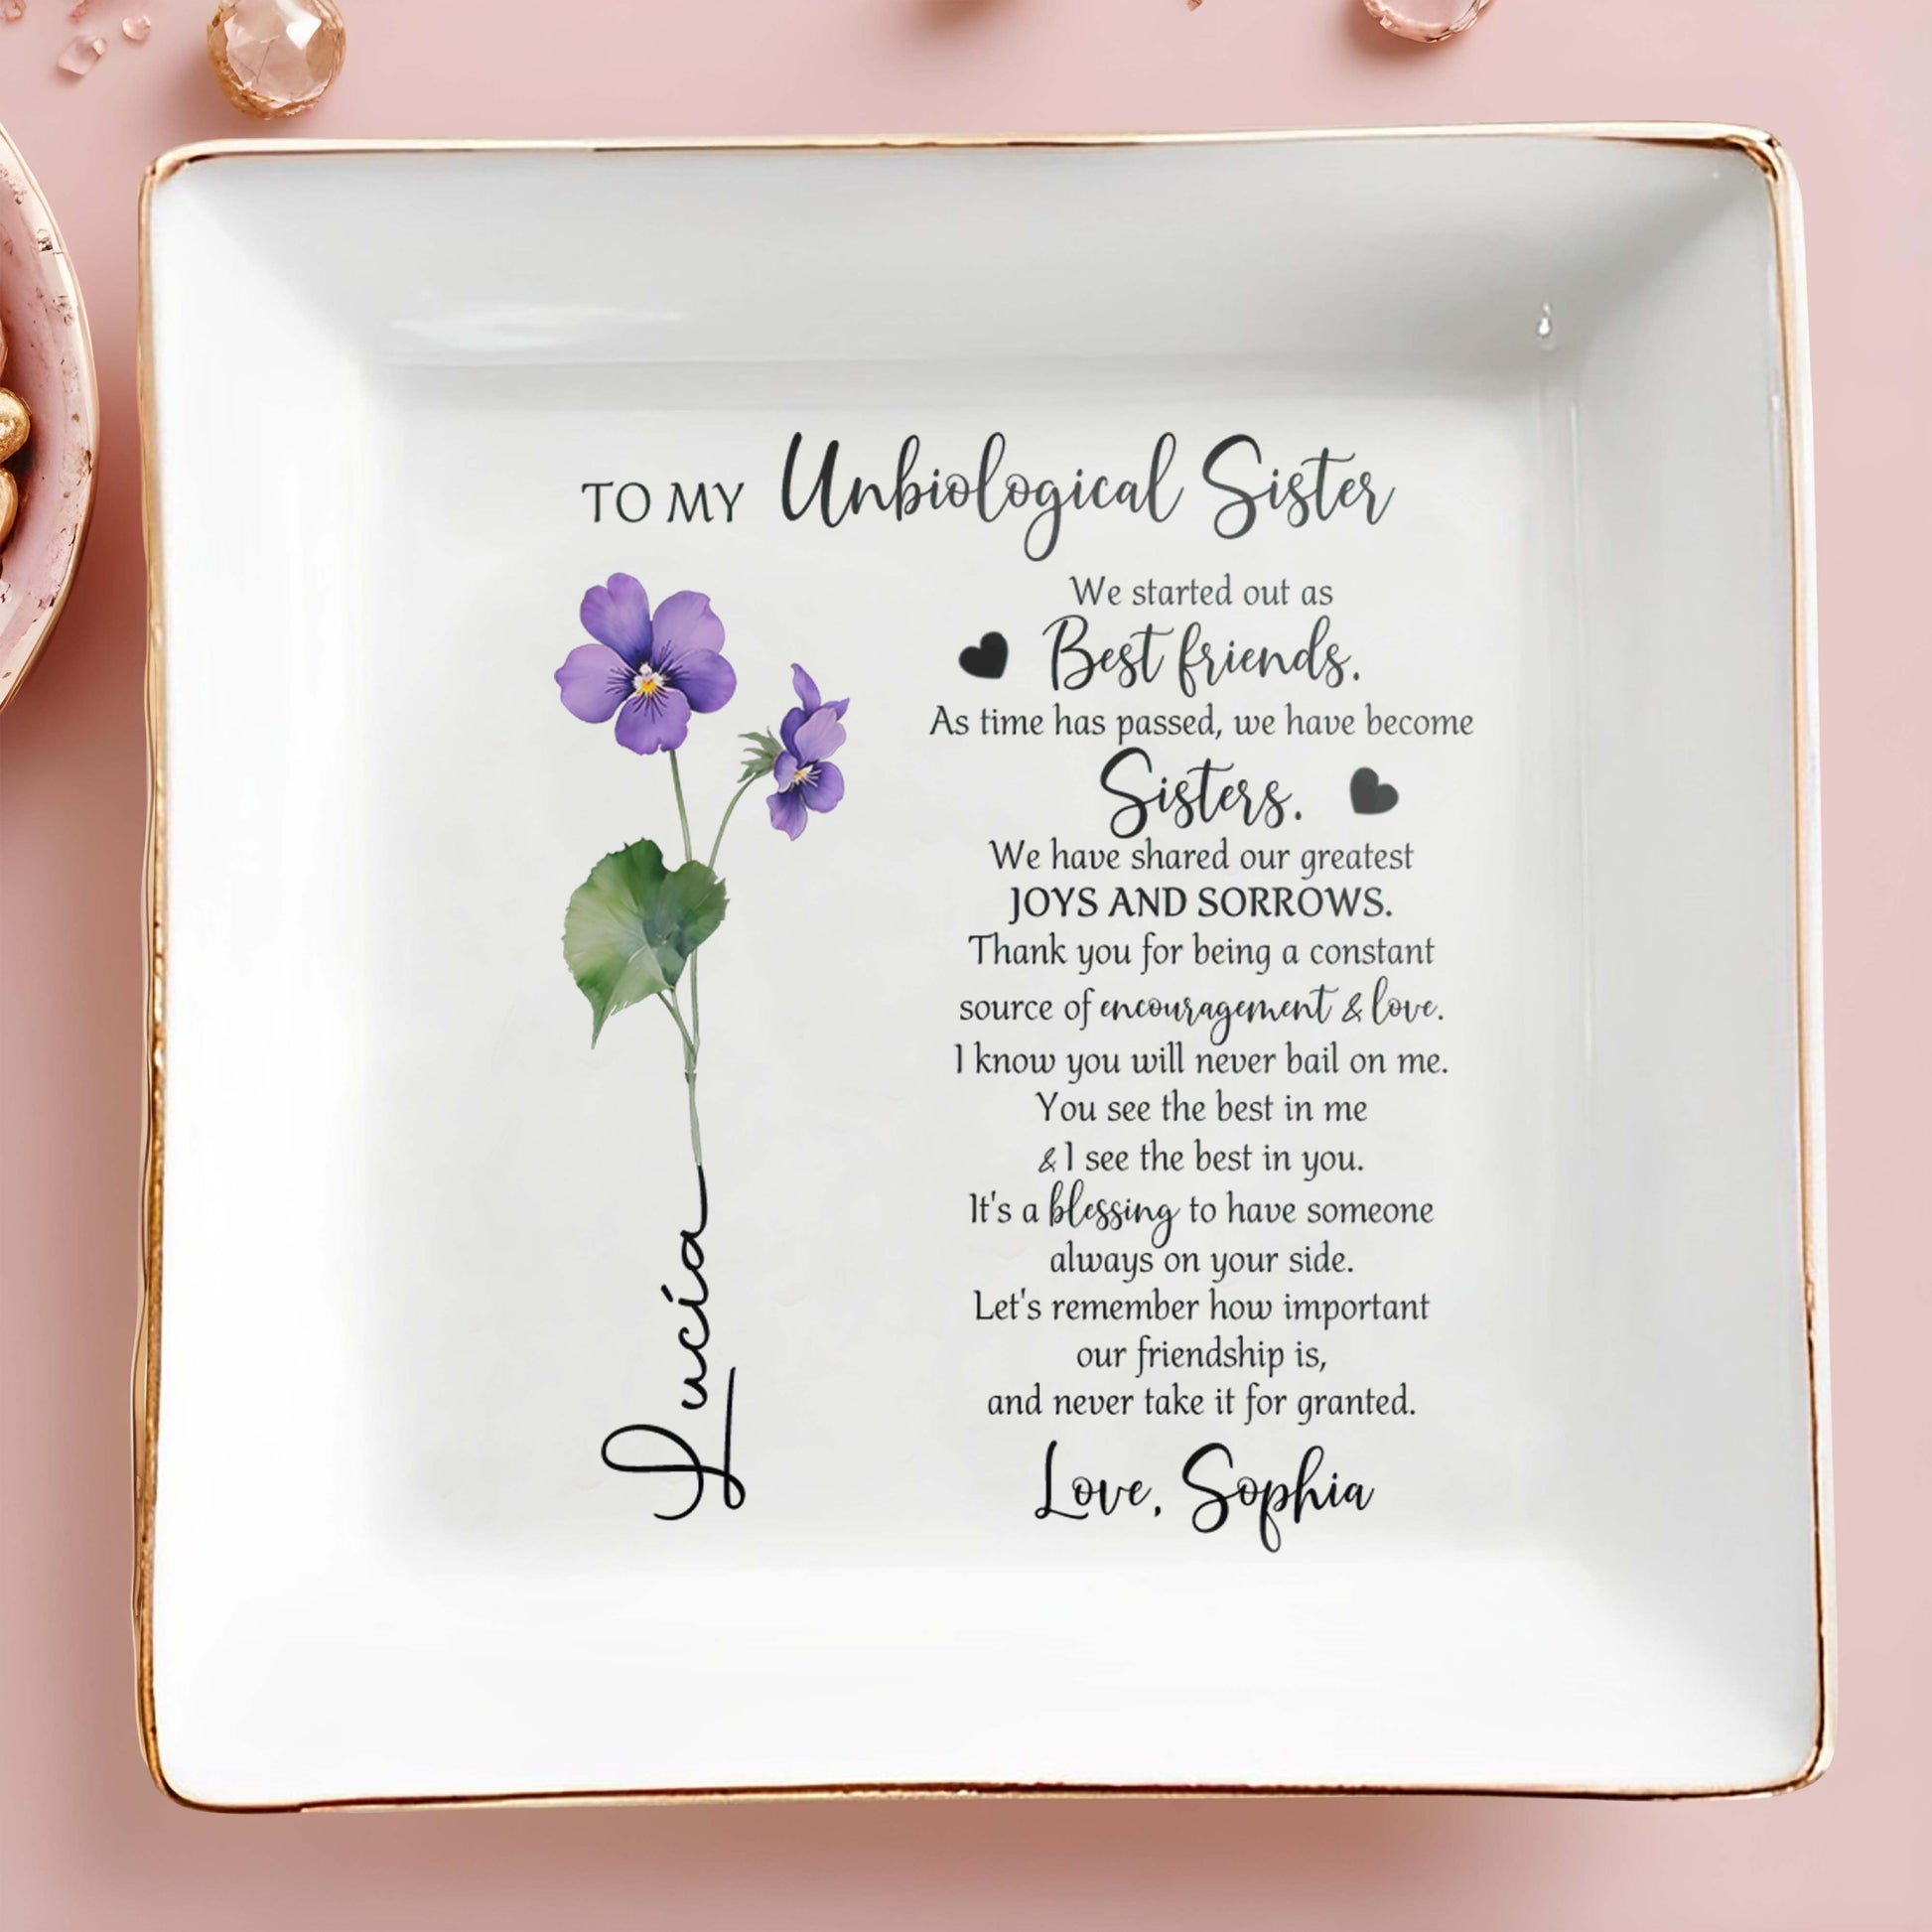 TO MY Unbiological Sister
We started out as
Best friends.
As time has passed, we have become
Sisters.
We have shared our greatest
JOYS AND SORROWS.
Thank you for being a constant
source of encouragement & love.
I know you will never bail on me.
You see the best in me
& I see the best in you.
It's a blessing to have someone
always on your side.
Let's remember how important
our friendship is,
and never take it for granted.
Love, Sophia
Lucia